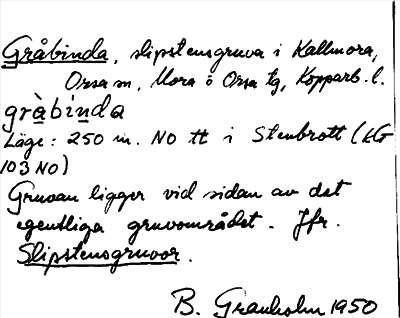 Gråbinda, slipstensgruva i Kallmora,
Orsa sn, Mora o Orsa tg, Kopparb. l.
gràbìnda
Läge: 250 m. NO tt i Stenbrott (KG
103 NO)
Gruvan ligger vid sidan av det
egentliga gruvområdet. Jfr.
Slipstensgruvor.
B. Granholm 1950